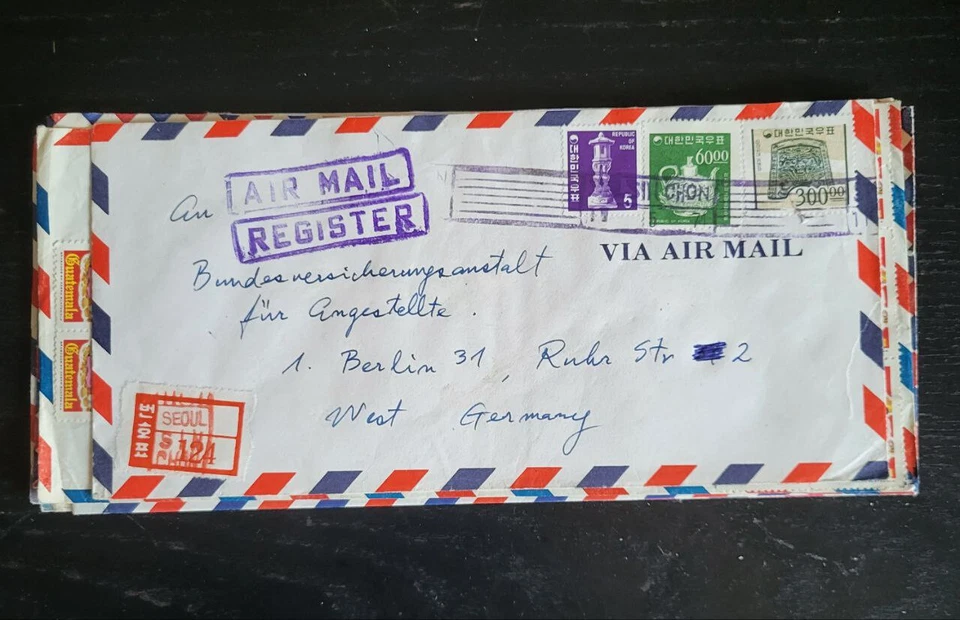 AIR MAIL
REGISTER
대한민국우표
REPUBLIC
OF
KOREA
5
대한민국우표
6000
대한민국우표
30000
CHON
VIA AIR MAIL
An
Bundesversicherungsanstalt
für Angestellte.
1. Berlin 31, Ruhr Str 2
West Germany
SEOUL
124
Guatemala
Guatemala